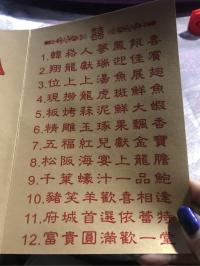 囍
1.韓裕人蔘鳳報喜
2.翔龍獻瑞迎佳賓
3.位上上湯魚展翅
4.現撈龍虎斑鮮魚
5.板烤蒜泥鮮大蝦
6.精雕玉琢果飄香
7.五福紅兒獻金寶
8.松阪海宴上龍膽
9.千葉蠔汁一品鮑
10.豬笑羊歡喜相逢
11.府城首選依蕾特
12.富貴圓滿歡一堂